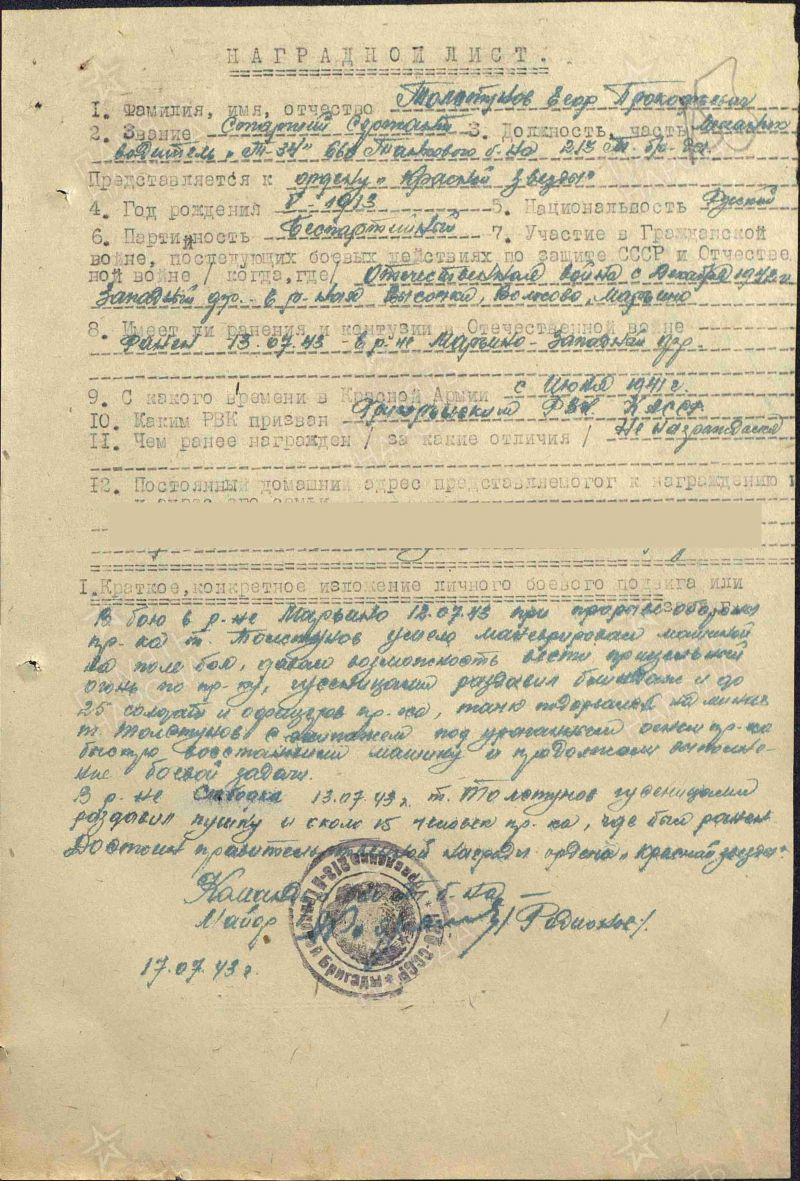 НАГРАДНОЙ ЛИСТ.
1. Фамилия, имя, отчество Толстунов Егор Прокофьевич
2. Звание Старший Сержант 3. Должность, часть Механик
водитель "Т-34" 668 Танкового б-на 213 т. бр-ды.
Представляется к ордену "Красной Звезды"
4. Год рождения V-1913 5. Национальность Русский
6. Партийность Беспартийный 7. Участие в Гражданской
войне, последующих боевых действиях по защите СССР и Отечестве
ной войне / когда, где/ Отечественная война с Декабря 1942 г
Западный фр. - в р-нах Высокая, Марьино
8. Имеет ли ранения и контузии в Отечественной войне
Ранен 13.07.43 - в р-не Марьино - Западный фр.
9. С какого времени в Красной Армии с Июля 1941 г.
10. Каким РВК призван РВК КАССР
11. Чем ранее награжден / за какие отличия / Не награждался
12. Постоянный домашний адрес представляемогог к награждению и
I. Краткое, конкретное изложение личного боевого подвига или
В бою в р-не Марьино 12.07.43 при прорыве обороны
пр-ка т. Толстунов умело маневрировал машиной
на поле боя, давая возможность вести прицельный
огонь по пр-ку, гусеницами раздавил блиндаж и до
25 солдат и офицеров пр-ка, танк подорвался на мине
т. Толстунов с экипажем под ураганным огнем пр-ка
быстро восстановили машину и продолжали выполне-
ние боевой задачи.
В р-не Слободка 13.07.43 г. т. Толстунов гусеницами
раздавил пушку и около 15 человек пр-ка, где был ранен.
Достоин правительственной награды ордена "Красной звезды".
Команд б-на
Майор /Родионов/.
17.07.43 г.